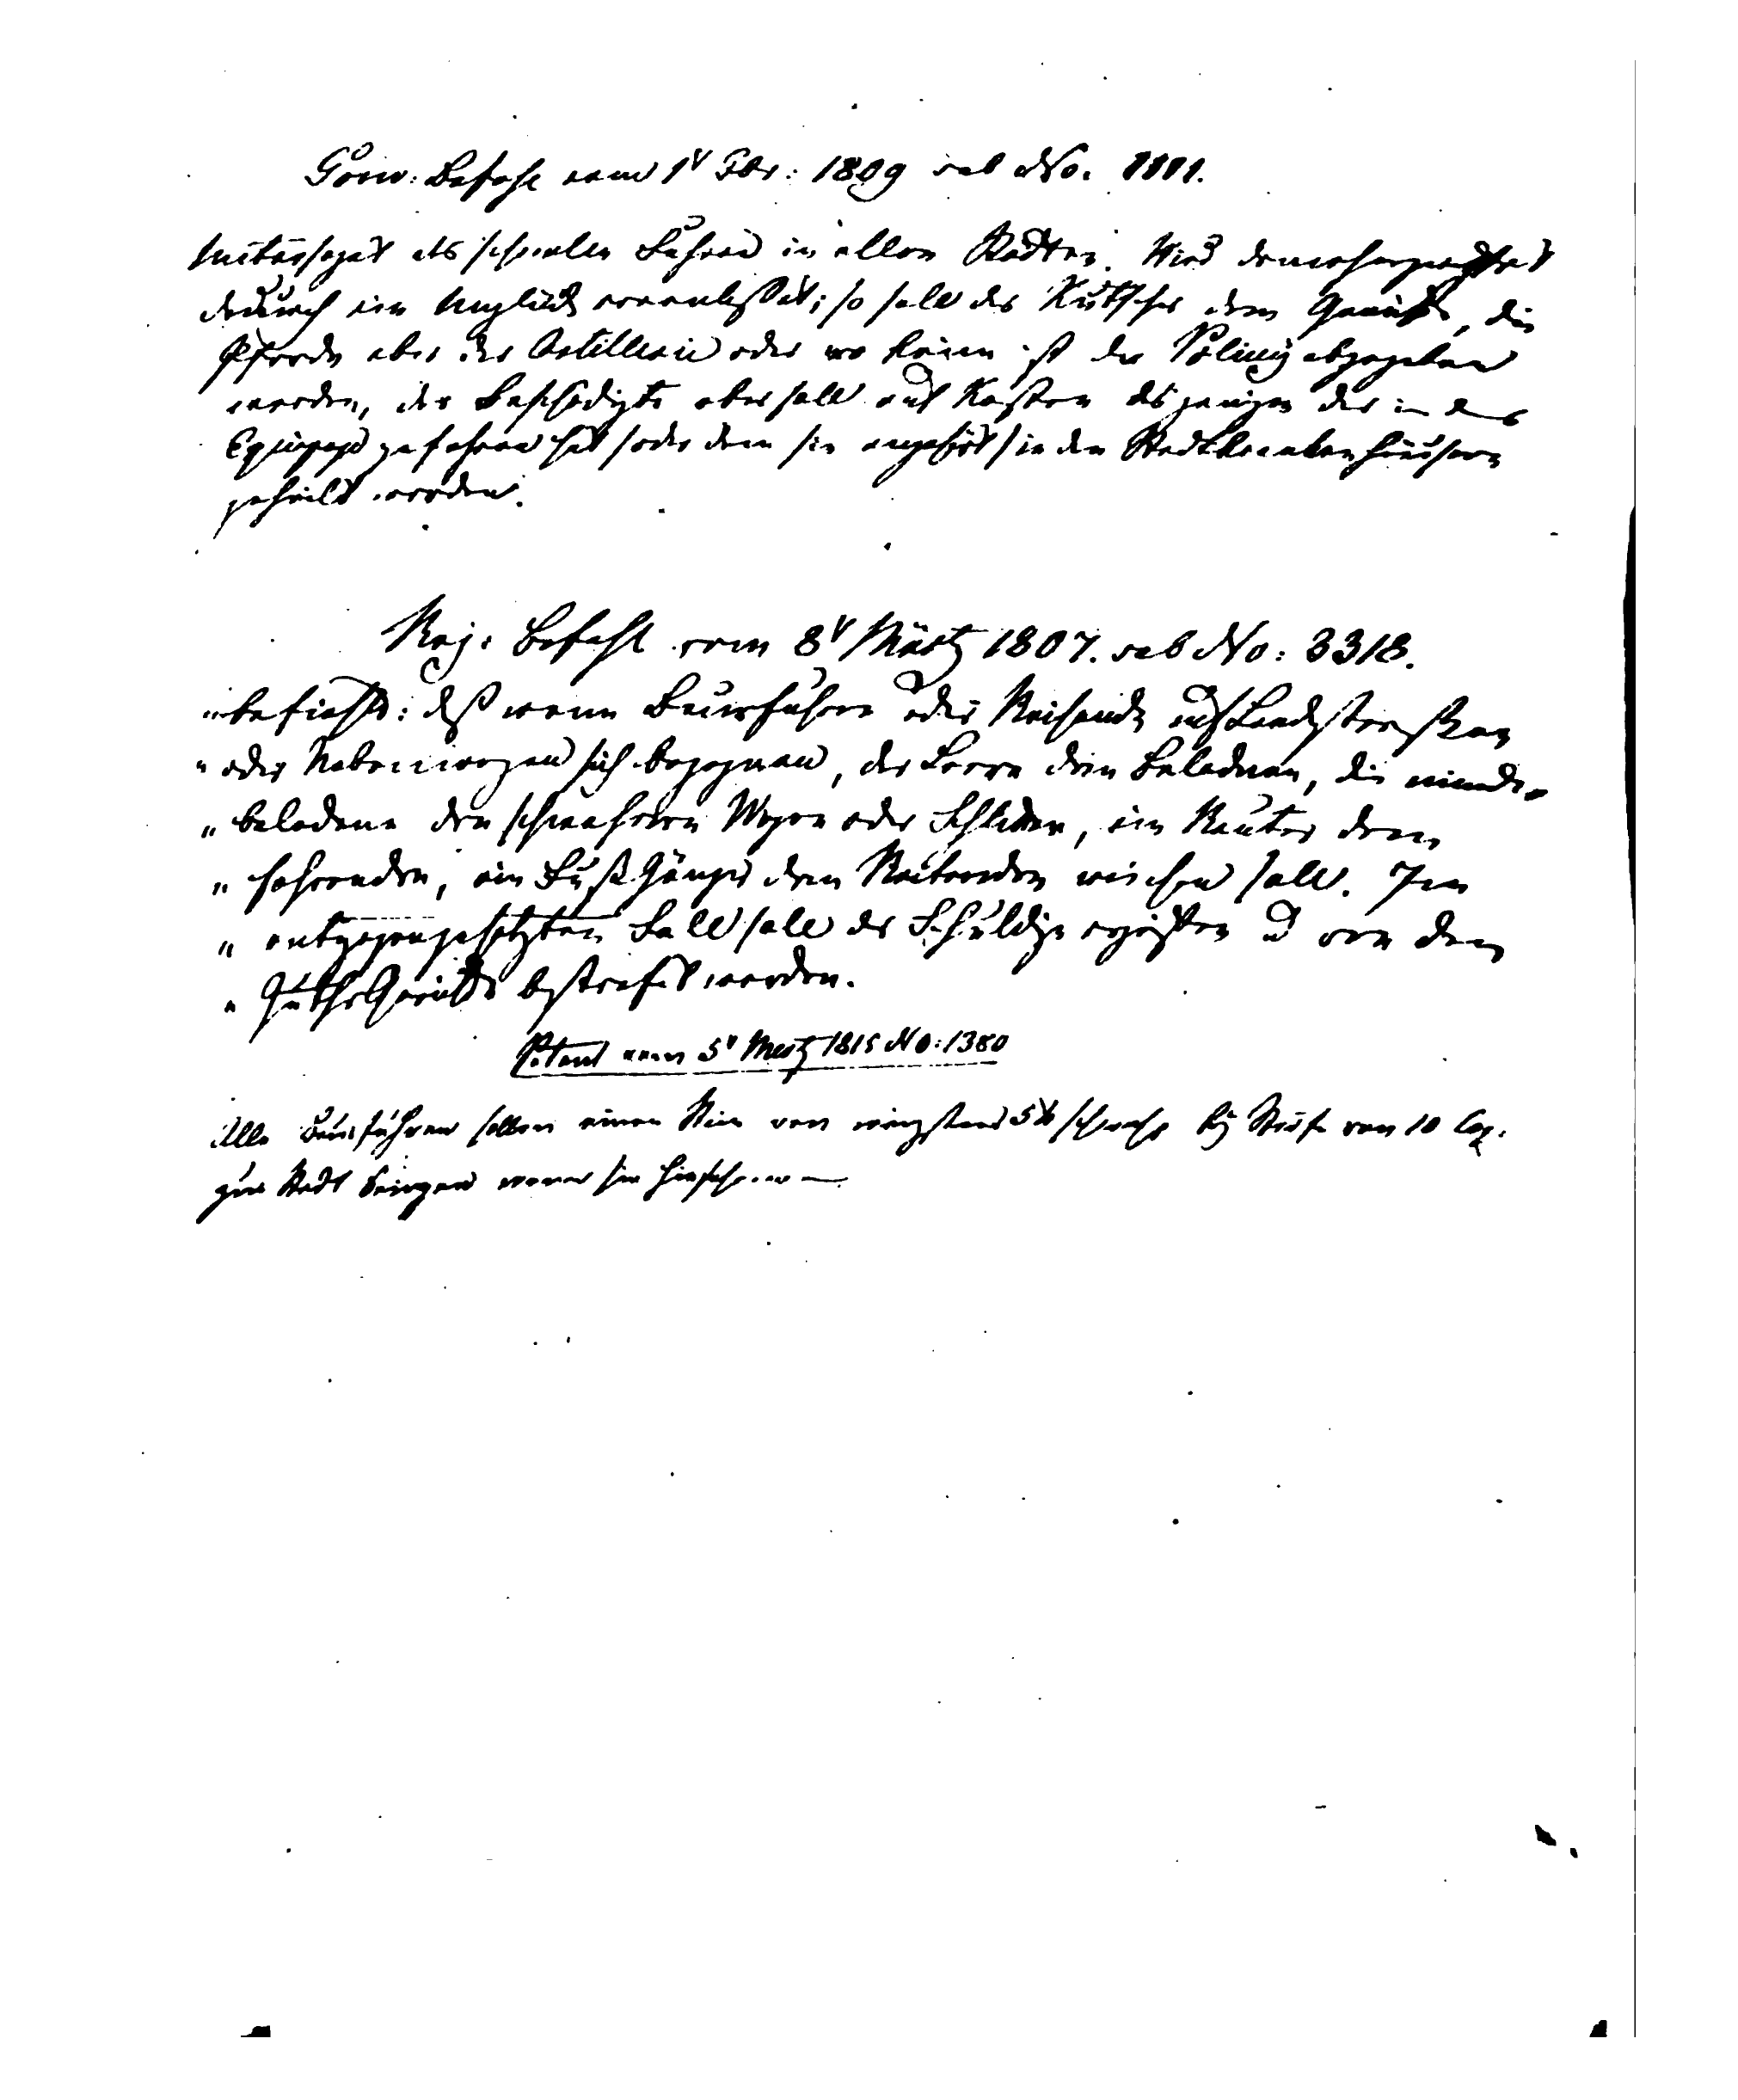 Gouv: Befehl vom 1t Febr: 1809 sub No. 1111.
untersagt das schnelle Fahren in allen Städten. Wird demohngeachtet
dadurch ein Unglück veranlaßet; so soll der Kutscher dem Gericht, die
Pferde aber der Artillerie oder wo keine ist der Polizey abgegeben
werden, der Beschädigte aber soll auf Kosten desjenigen der in der
Equipage gefahren hat /oder dem sie angehört/ in den Stadtkrankenhäusern
geheilt werden.
Reg: Befehl vom 8t Märtz 1807. sub No: 3318.
"befiehlt: daß wenn Bauerfuhren oder Reisende auf Landstraßen
"oder Nebenwegen sich begegnen, der Leere dem Beladenen, die minder
"beladene den schwereren Wagen oder Schlitten, ein Reuter dem
"fahrenden, ein Fußgänger dem Reitenden weichen soll. Im
"entgegengesetzten Fall soll der Schuldige ergriffen u von dem
"Guths Gerichte bestrafet werden.
Patent vom 5t Mertz 1815 No: 1380
Alle Bauerfuhren sollen einen Stein von wenigstens 5 ℔ schwehr bey Strafe von 10 Cop.
zur Stadt bringen wenn sie